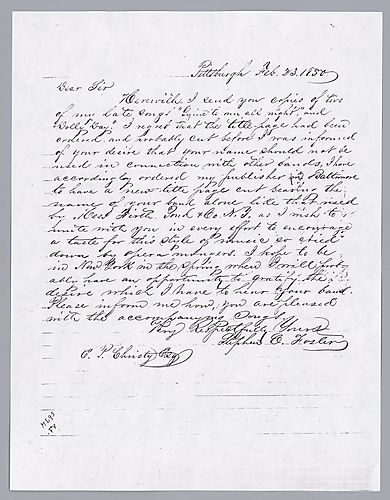 Pittsburgh Feb. 23. 1850
Dear Sir
Herewith I send you copies of two
of my late songs "Gwine to run all night," and
"Dolly Day." I regret that the title page had been
ordered and probably cut before I was informed
of your desire that your name should not be
used in connection with other bands. I have
accordingly ordered my publisher in Baltimore
to have a new title page cut bearing the
name of your band alone like that used
by Mess Firth, Pond & Co. N.Y. as I wish to
unite with you in every effort to encourage
a taste for this style of music so cried
down by opera mongers. I hope to be
in New York in the Spring when I will prob-
ably have an opportunity to gratify the
desire which I have to hear your band.
Please inform me how you are pleased
with the accompanying songs
Very Respectfully Yours
Stephen C. Foster
E. P. Christy Esq